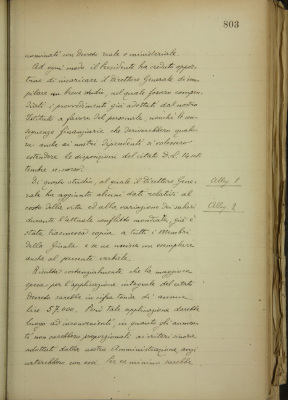 803
nominati con decreto reale o ministeriale.
Ad ogni modo il Presidente ha creduto oppor-
tuno di incaricare il direttore Generale di com-
pilare un breve studio, nel quale fossero compen-
diati i provvedimenti già adottati dal nostro
Istituto a favore del personale nonchè le con-
seguenze finanziarie che deriverebbero qualo-
ra anche ai nostri dipendenti si volessero
estendere le disposizioni del citato D. L. 14 ot-
tobre
Di questo studio, al quale il direttore Gene-
Alleg. 1
rale ha aggiunto alcuni dati relativi al
costo della vita ed alla variazione dei salari
Alleg. 2
durante l'attuale conflitto mondiale, già è
stata trasmessa copia a tutti i membri
della Giunta e se ne unisce un esemplare
anche al presente verbale.
Risulta sostanzialmente che la maggiore
spesa per l'applicazione integrale del citato
decreto sarebbe in cifra tonda di annue
lire 57.000. Però tale applicazione darebbe
luogo ad inconvenienti, in quanto gli aumen-
ti non sarebbero proporzionati ai criteri finora
adottati dalla nostra Amministrazione, anzi
con essi. Per se minimi sarebbe